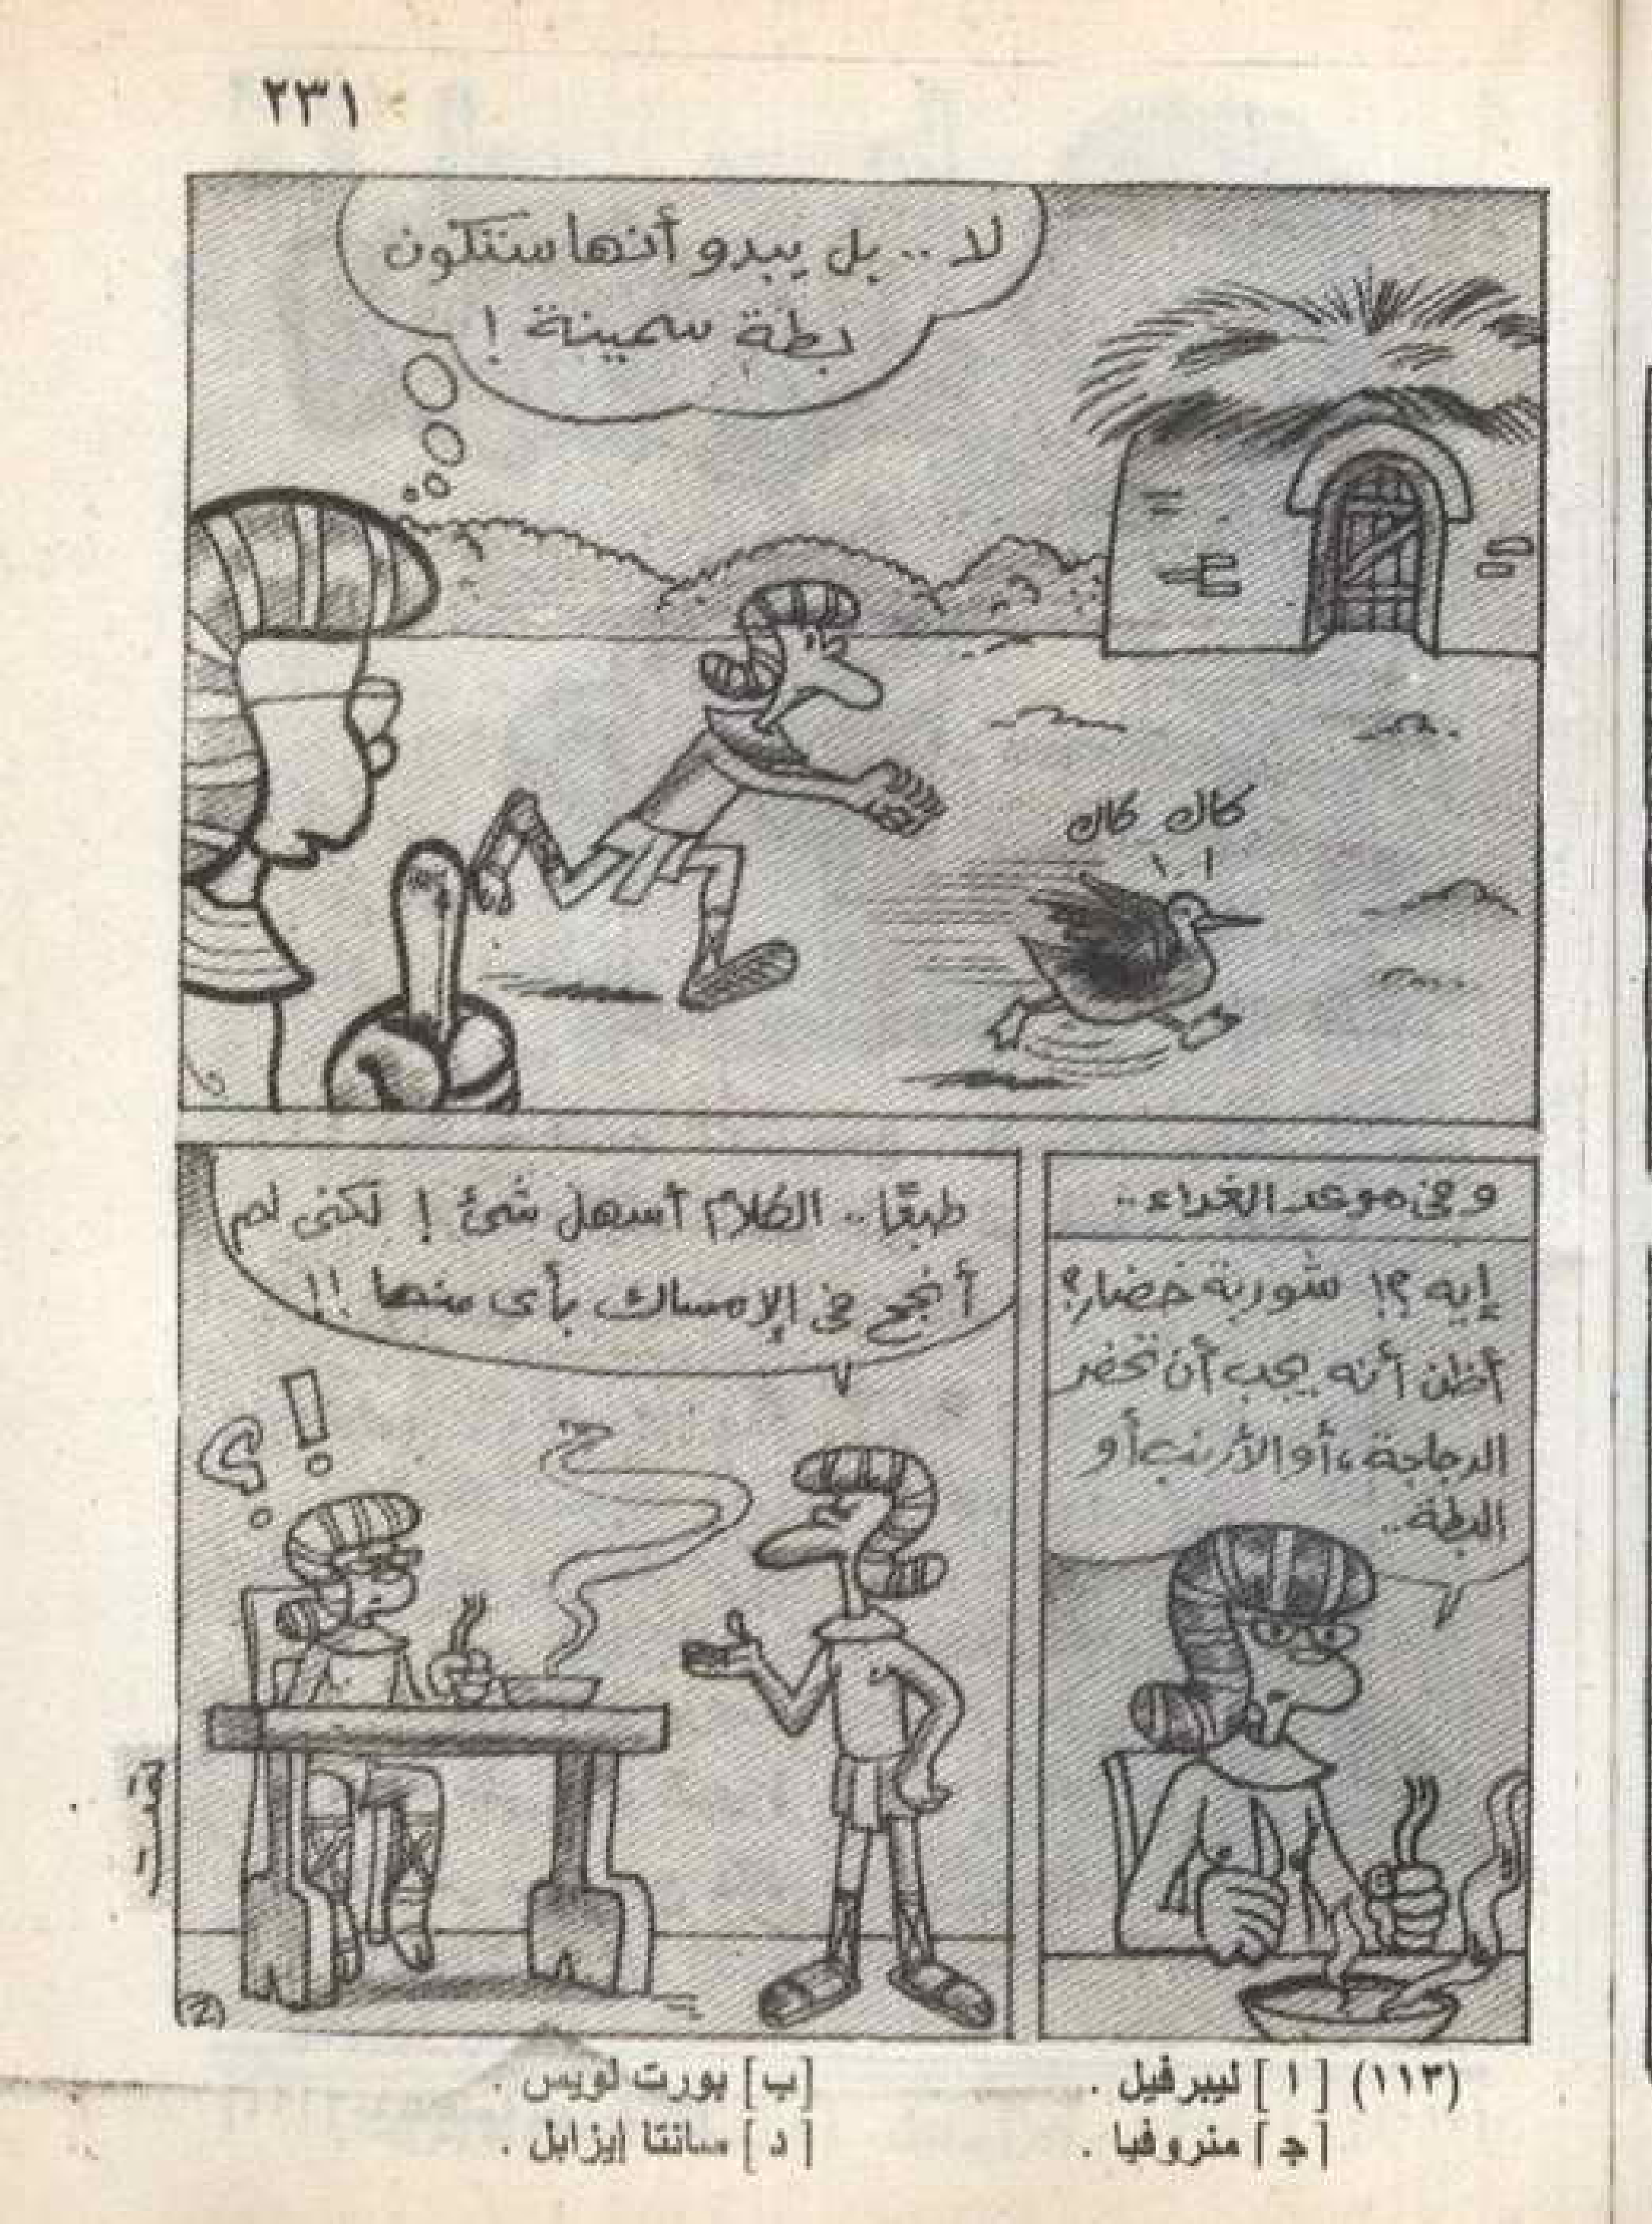 ٢٣١
لا .. بل يبدو أنها ستكون
بطة سمينة !
كاك كاك
وفى موعد الغداء ..
إيه ؟! شوربة خضار ؟
أظن أنه يجب أن تحضر
الدجاجة ، أو الأرنب أو
البطة ..
طبعًا .. الكلام أسهل شئ ! لكنى لم
أنجح فى الإمساك بأى منها !!
؟ !
(2)
(١١٣) [ ا ] ليبرفيل .
[ب] بورت لويس .
[ج] منروفيا .
[ د ] سانتا إيزابل .